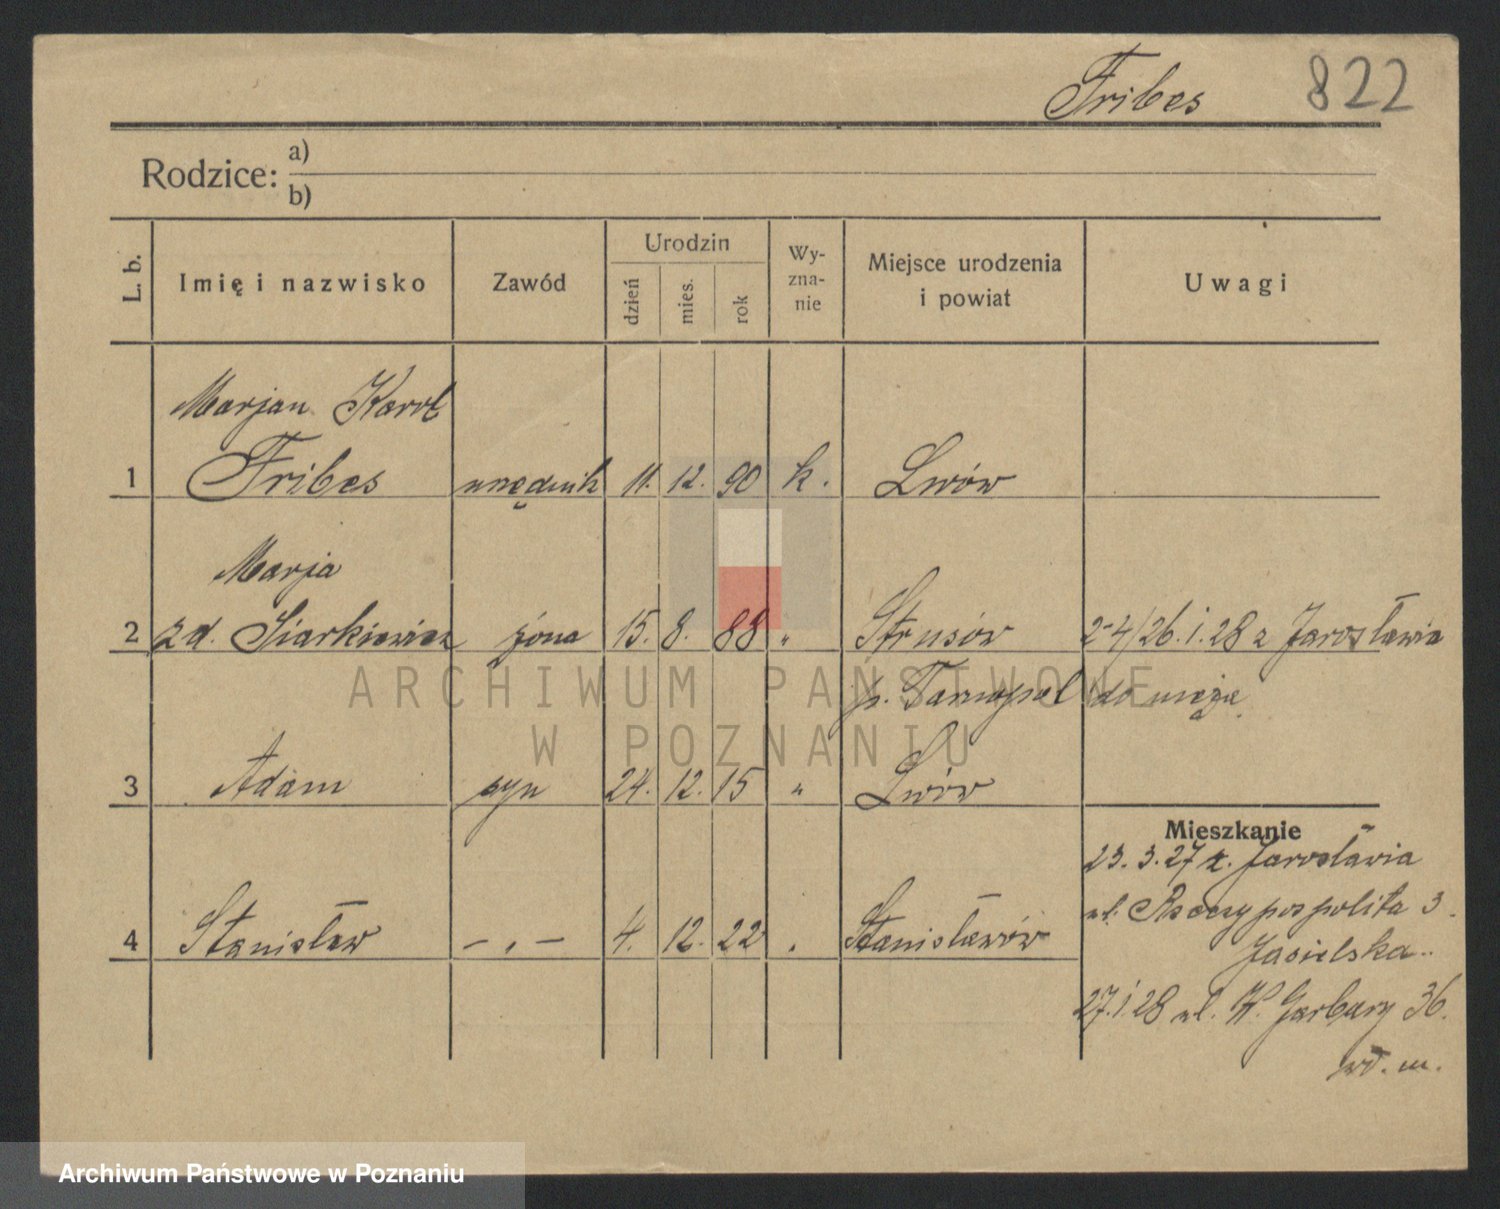 Fribes 822
Rodzice: a)
b)
L. b. Imię i nazwisko Zawód Urodzin dzień mies. rok Wyznanie Miejsce urodzenia i powiat Uwagi
Marjan Karol
1 Fribes urzędnik 11. 12. 90 k. Lwów
Marja
2 zd. Siarkiewicz żona 15. 8. 88 " Strusów 2-4/26.1.28 z Jarosławia
p. Tarnopol do męża
3 Adam syn 24. 12. 15 " Lwów
Mieszkanie
23.3.27 z. Jarosławia
ul. Rzeczypospolita 3.
4 Stanisław – „ – 4. 12. 22 " Stanisławów
Jasielska
27.1.28 ul. W. Garbary 36.
wł. m.
ARCHIWUM PAŃSTWOWE
W POZNANIU
Archiwum Państwowe w Poznaniu